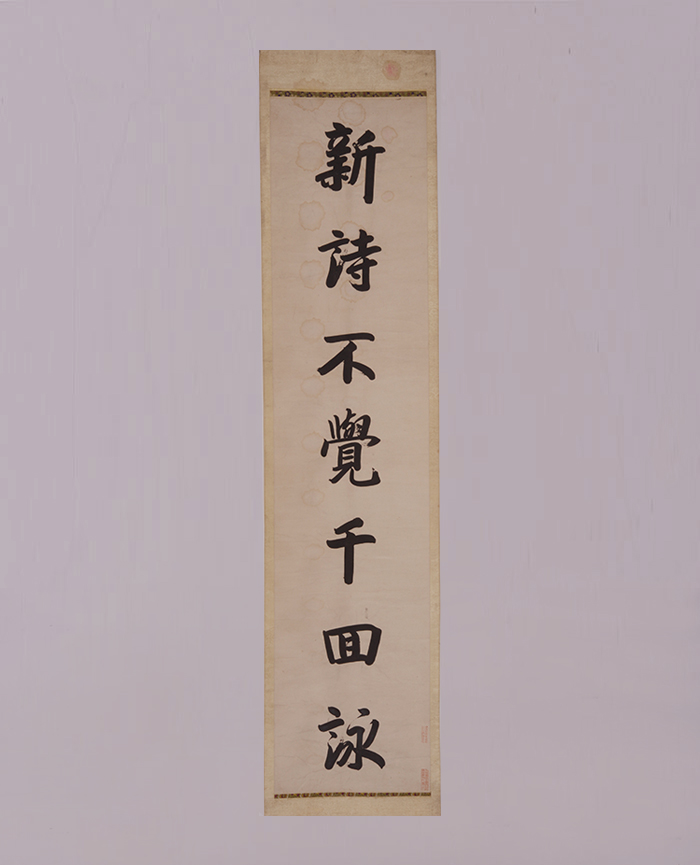 新詩不覺千回詠